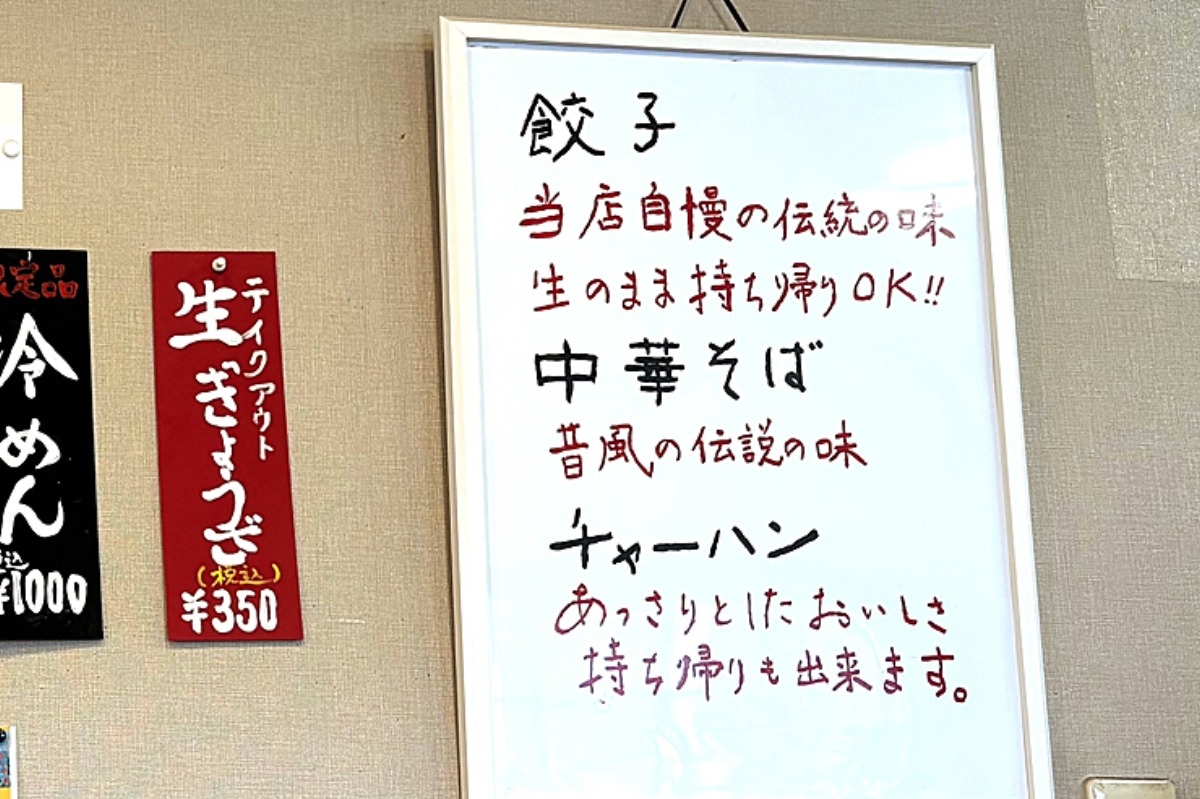 餃子
当店自慢の伝統の味
生のまま持ち帰りOK!!
中華そば
昔風の伝説の味
チャーハン
あっさりとしたおいしさ
持ち帰りも出来ます。
テイクアウト
生ぎょうざ
(税込)
¥350
限定品
冷めん
税込
¥1000